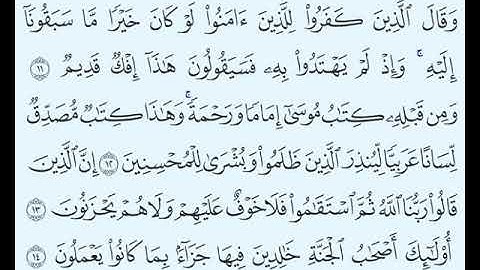 وَقَالَ ٱلَّذِينَ كَفَرُوا۟ لِلَّذِينَ ءَامَنُوا۟ لَوْ كَانَ خَيْرًا مَّا سَبَقُونَآ
إِلَيْهِ ۚ وَإِذْ لَمْ يَهْتَدُوا۟ بِهِۦ فَسَيَقُولُونَ هَٰذَآ إِفْكٌ قَدِيمٌ ١١
وَمِن قَبْلِهِۦ كِتَٰبُ مُوسَىٰٓ إِمَامًا وَرَحْمَةً ۚ وَهَٰذَا كِتَٰبٌ مُّصَدِّقٌ
لِّسَانًا عَرَبِيًّا لِّيُنذِرَ ٱلَّذِينَ ظَلَمُوا۟ وَبُشْرَىٰ لِلْمُحْسِنِينَ ١٢ إِنَّ ٱلَّذِينَ
قَالُوا۟ رَبُّنَا ٱللَّهُ ثُمَّ ٱسْتَقَٰمُوا۟ فَلَا خَوْفٌ عَلَيْهِمْ وَلَا هُمْ يَحْزَنُونَ ١٣
أُو۟لَٰٓئِكَ أَصْحَٰبُ ٱلْجَنَّةِ خَٰلِدِينَ فِيهَا جَزَآءًۢ بِمَا كَانُوا۟ يَعْمَلُونَ ١٤